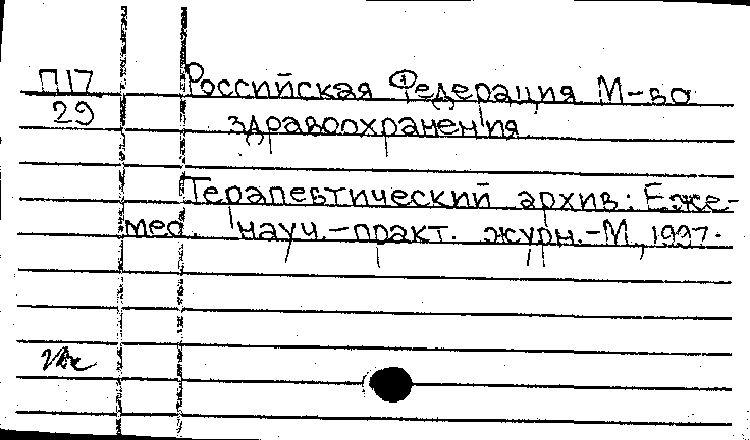 П17
29
Российская Федерация М-во
здравоохранения
Терапевтический архив: Еже-
мес. науч.-практ. журн.-М., 1997.